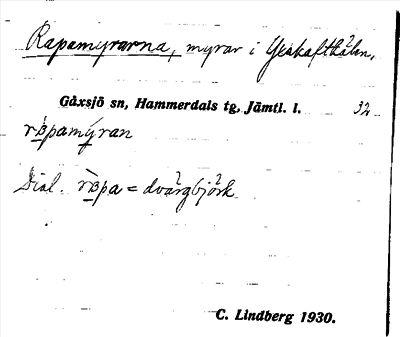 Rapamyrarna, myrar i
Gåxsjö sn, Hammerdals tg, Jämtl. l. 32
råpamýran
Dial. råpa = dvärgbjörk
C. Lindberg 1930.